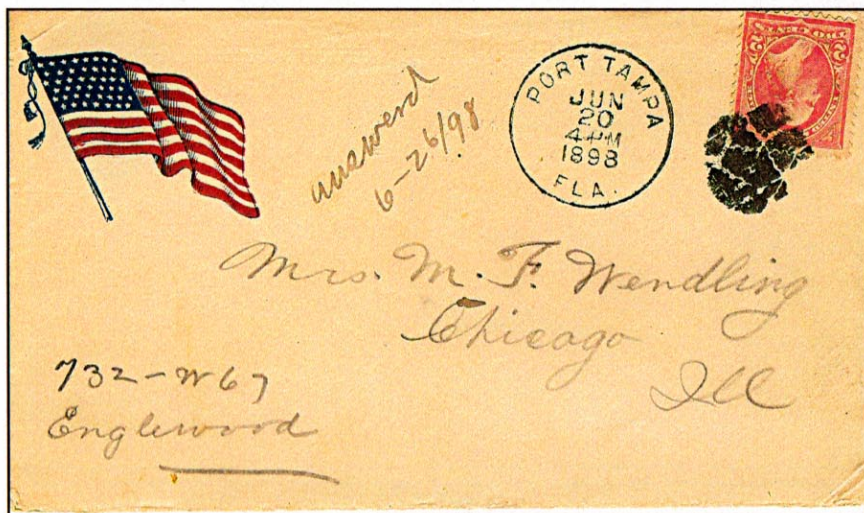 answerd
6-26/98
PORT TAMPA
JUN
20
4-PM
1898
FLA.
Mrs. M. F. Wendling
Chicago
Ill
732-W67
Englewood